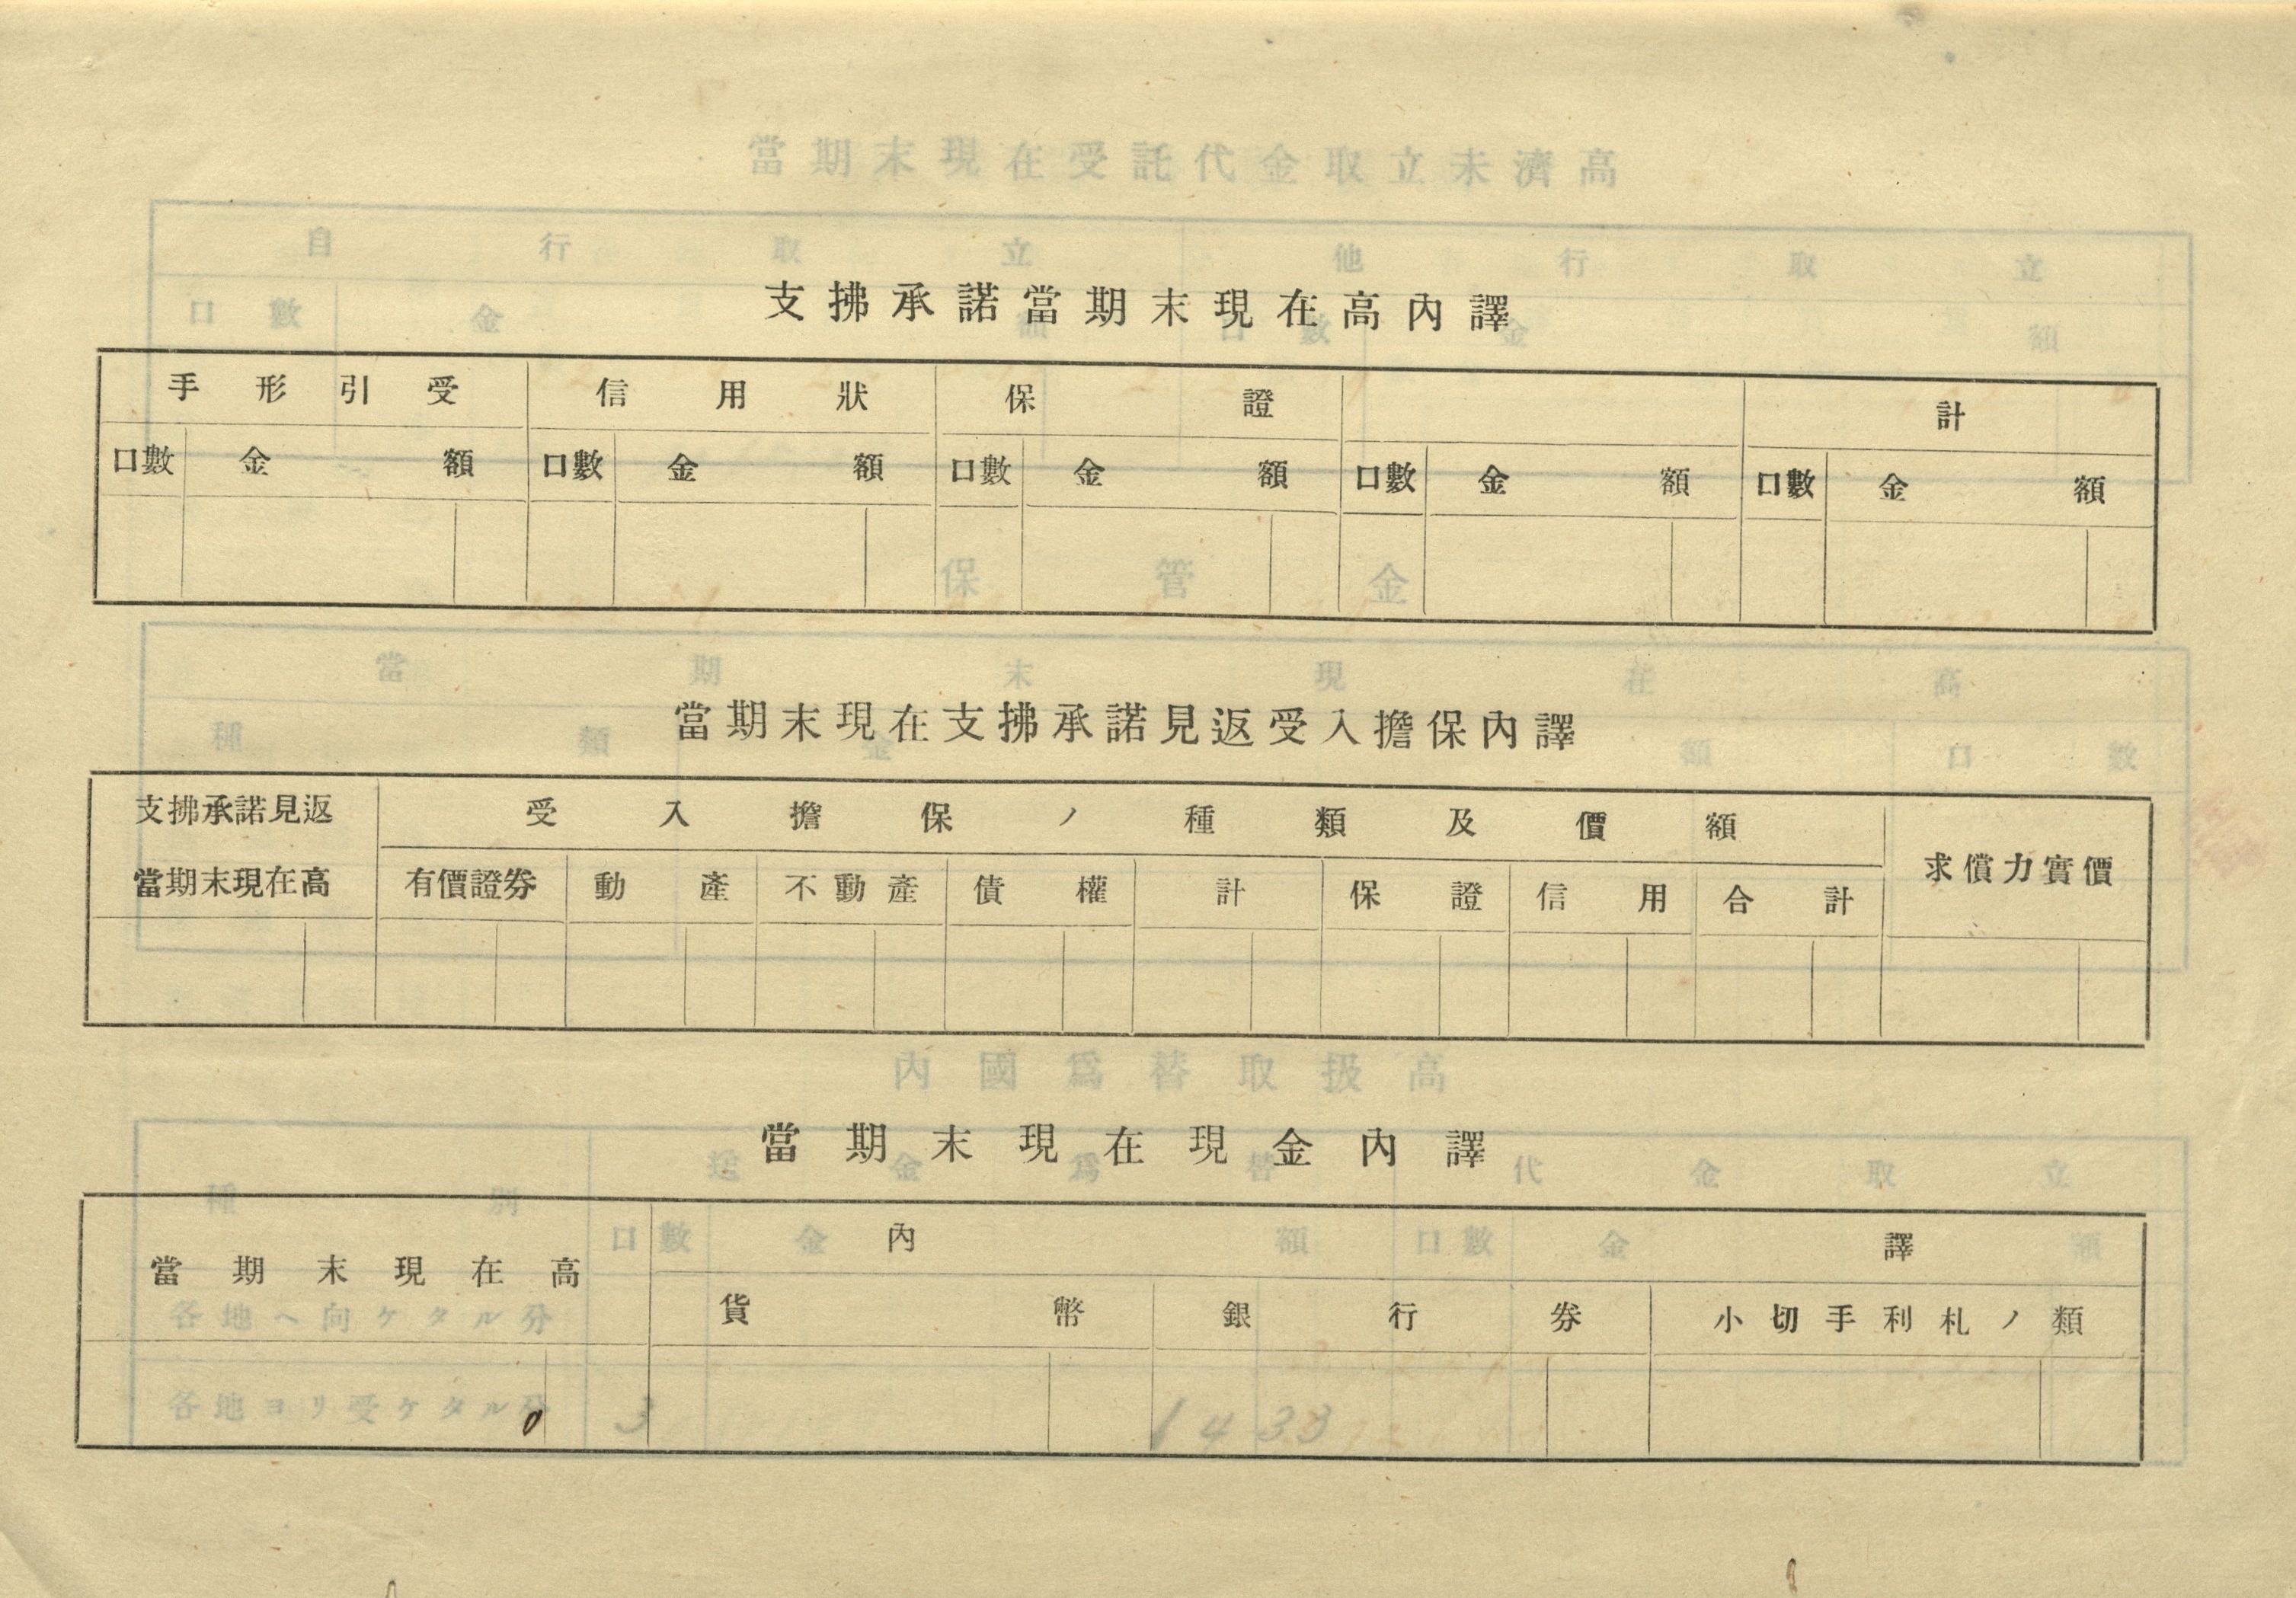 支拂承諾當期末現在高內譯
手形引受 信用狀 保證 計
口數 金額 口數 金額 口數 金額 口數 金額 口數 金額
當期末現在支拂承諾見返受入擔保內譯
支拂承諾見返 受入擔保ノ種類及價額
求償力實價
當期末現在高 有價證券 動產 不動產 債權 計 保證 信用 合計
當期末現在現金內譯
內譯
當期末現在高
貨幣 銀行券 小切手利札ノ類
0
當期末現在受託代金取立未濟高
自行取立 他行取立
口數 金額 口數 金額
保管金
當期末現在高
種類 金額 口數
內國爲替取扱高
種別 送金爲替 代金取立
口數 金額 口數 金額
各地ヘ向ケタル分
各地ヨリ受ケタル分 3